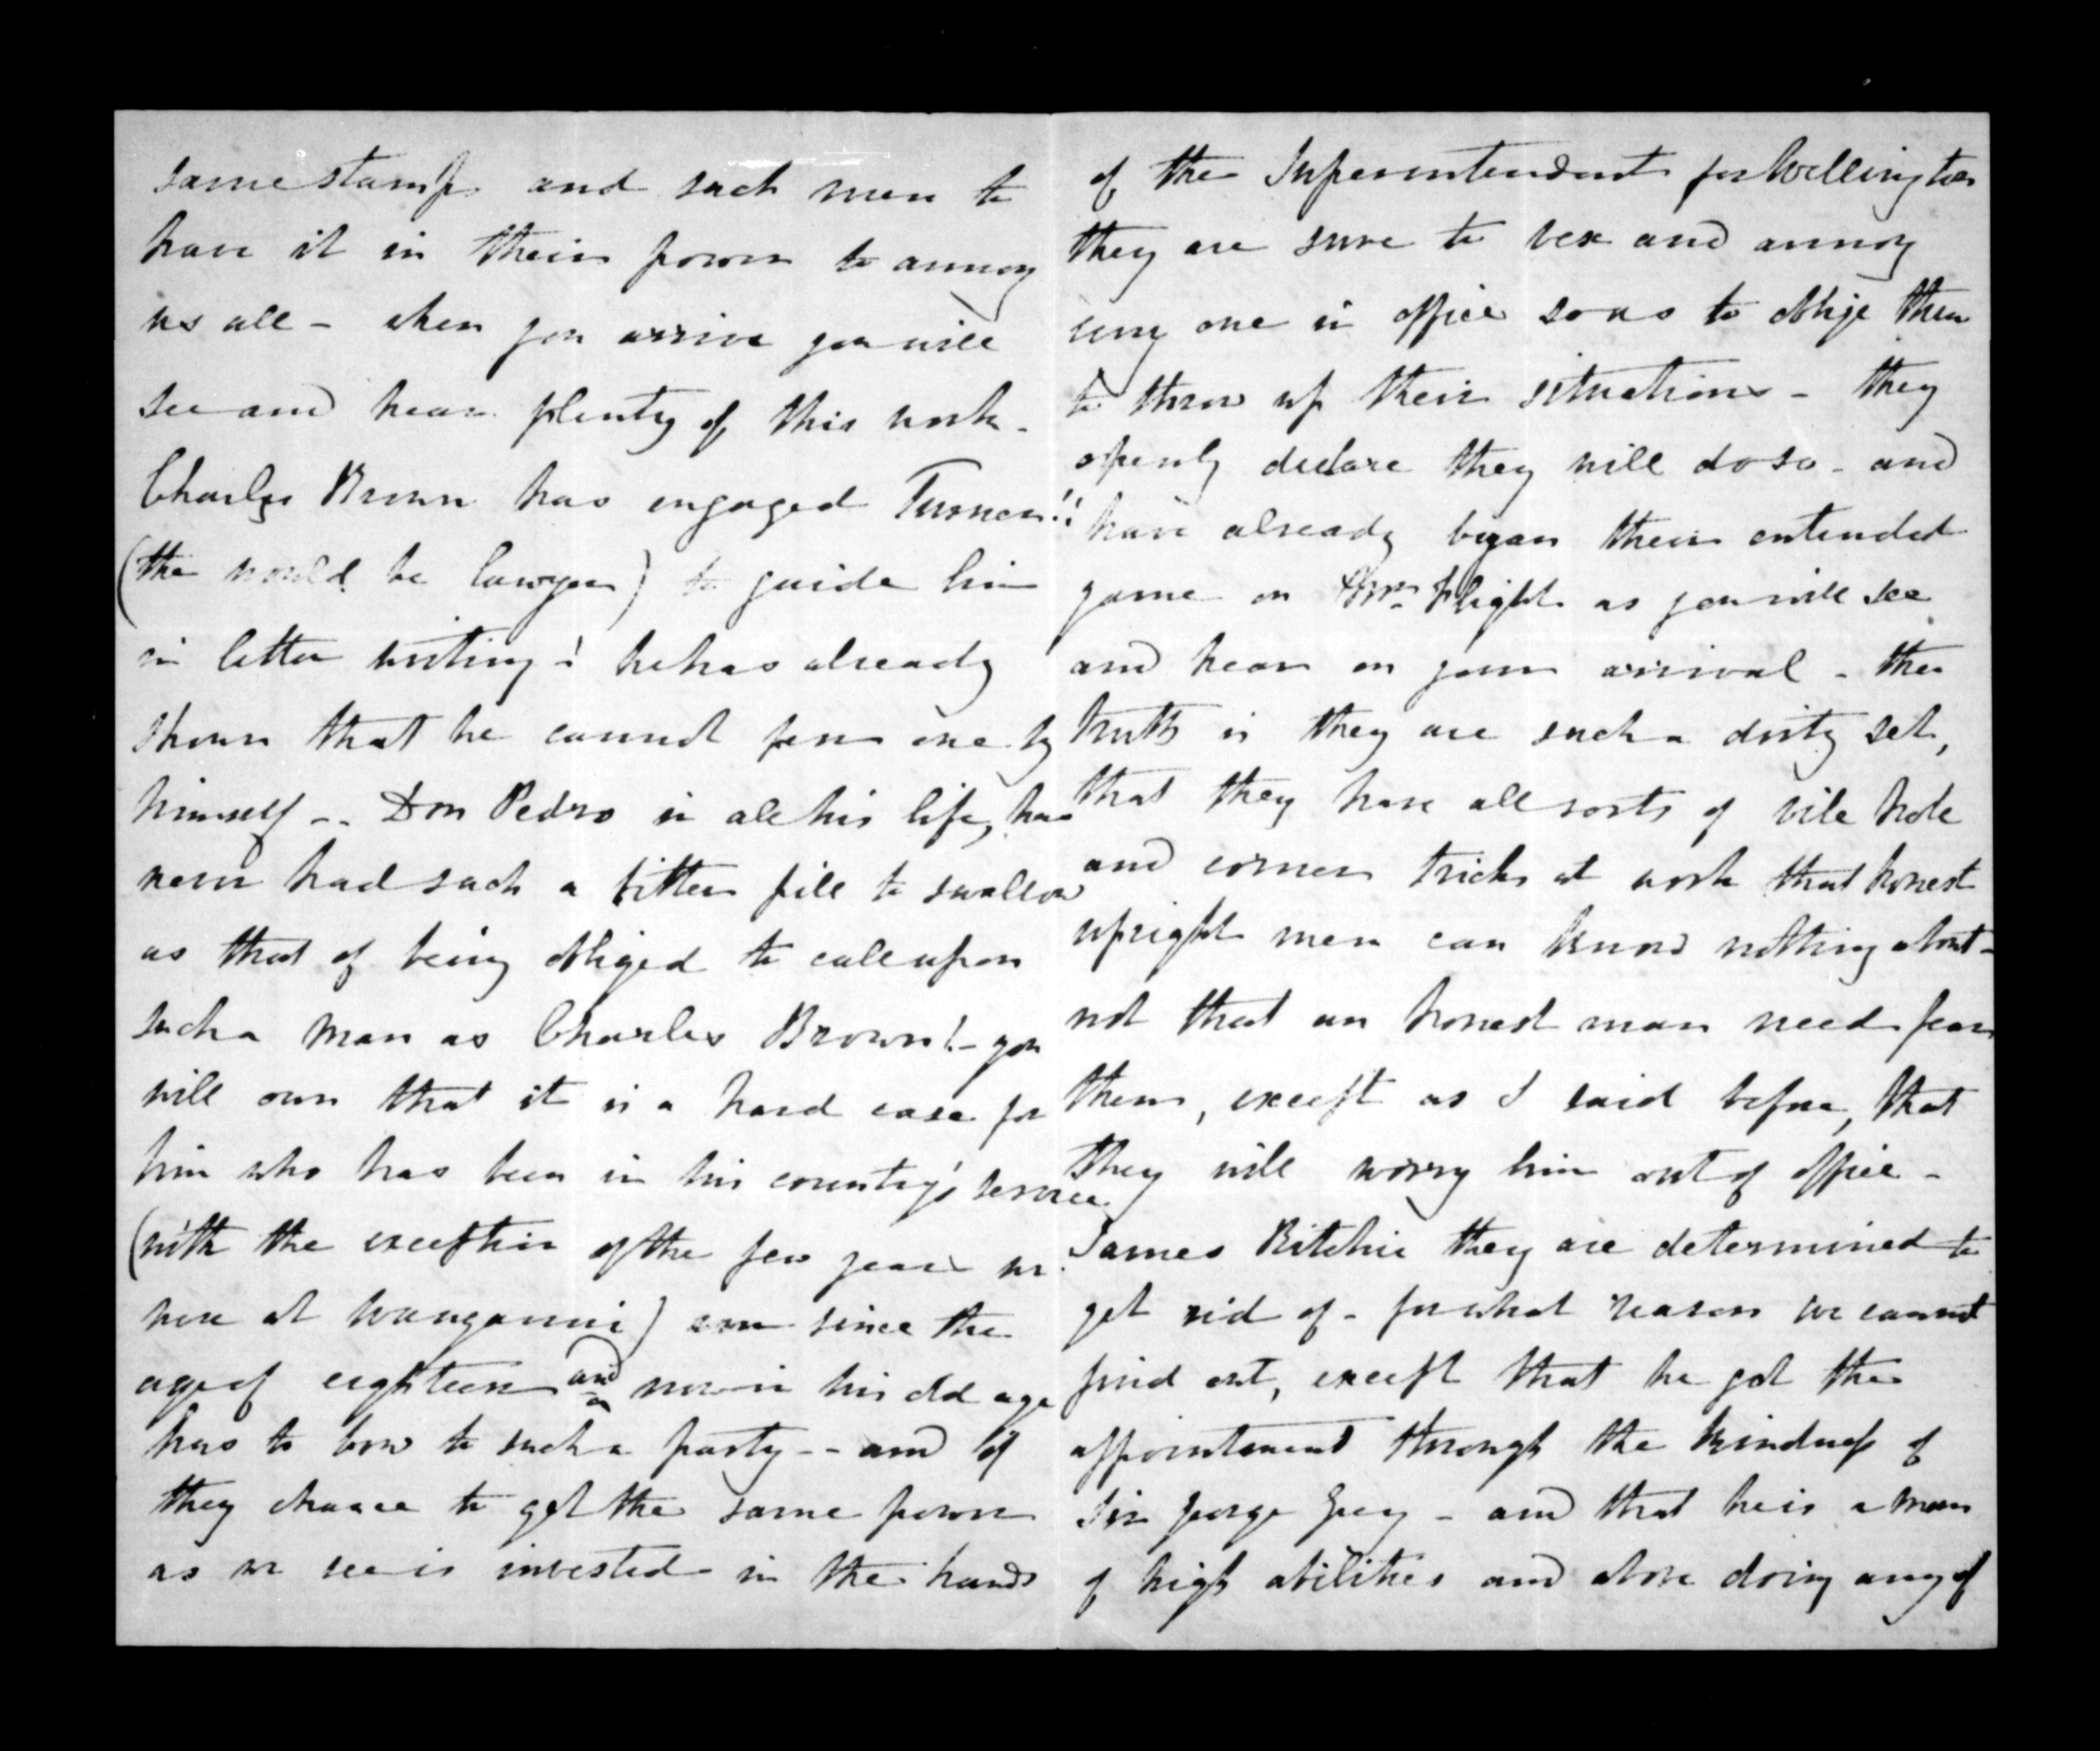 same stamp and such men to
have it in their power to annoy
us all - when you arrive you will
see and hear plenty of this work -
Charles Brown has engaged Turner!!
(the would be lawyer) to guide him
in letter writing! he has already
shown that he cannot pen one by
himself -- Don Pedro in all his life, has
never had such a bitter pill to swallow
as that of being obliged to call upon
such a man as Charles Brown! - you
will own that it is a hard case for
him who has been in his country's service
(with the exception of the few years we
were at Wanganui) ever since the
age of eighteen and now in his old age
has to bow to such a party -- and if
they chance to get the same power
as we see is invested in the hands
of the Superintendent for Wellington
they are sure to vex and annoy
every one in office so as to oblige them
to throw up their situations - they
openly declare they will do so - and
have already began their entended
game on Flight as you will see
and hear on your arrival - the
truth is they are such a dirty set,
that they have all sorts of vile hole
and corner tricks at work that honest
upright men can know nothing about -
not that an honest man need fear
them, except as I said before, that
they will worry him out of office -
James Ritchie they are determined to
get rid of - for what reason we cannot
find out, except that he got the
appointment through the kindness of
Sir George Grey - and that he is a man
of high abilities and above doing any of